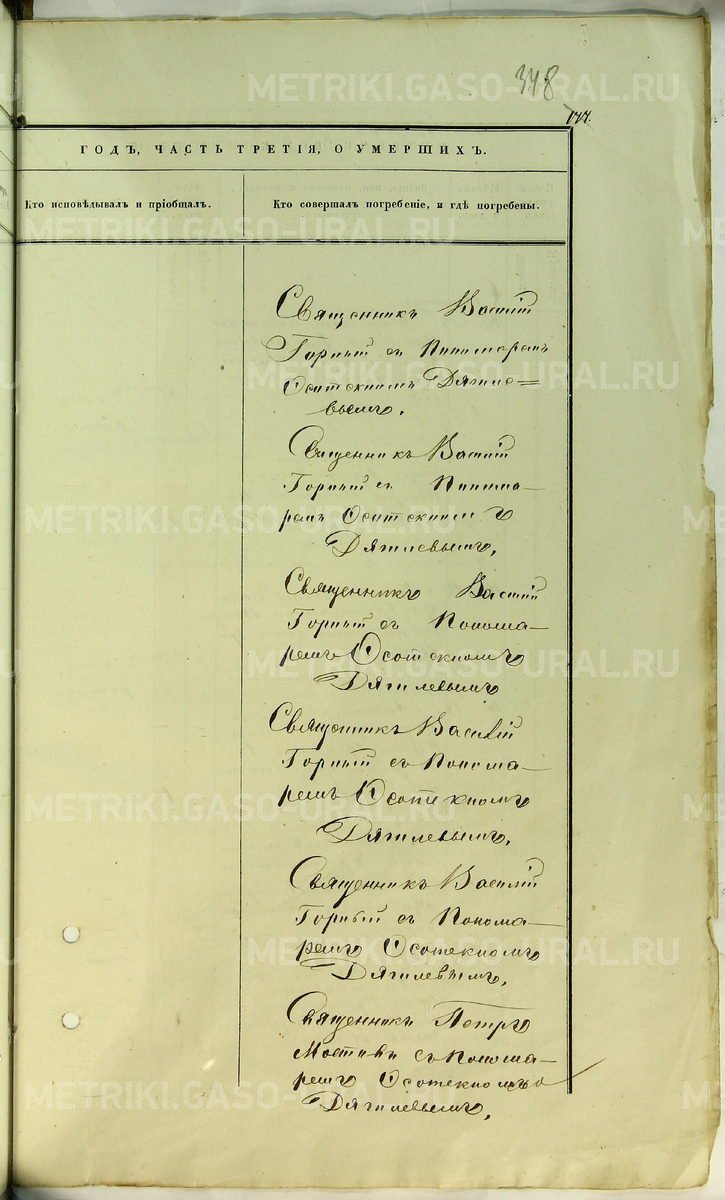 348
177.
ГОДЪ, ЧАСТЬ ТРЕТІЯ, О УМЕРШИХЪ.
Кто исповѣдывалъ и пріобщалъ.
Кто совершалъ погребеніе, и гдѣ погребены.
Священникъ Василій
Горный съ Пономаремъ
Дягиле=
вымъ.
Священникъ Василій
Горный съ Понома-
ремъ
Дягилевымъ.
Священникъ Василій
Горный съ Понома-
ремъ
Дягилевымъ
Священникъ Василій
Горный съ Понома-
ремъ
Дягилевымъ.
Священникъ Василій
Горный съ Понома-
ремъ
Дягилевымъ.
Священникъ Петръ
съ Понома-
ремъ
Дягилевымъ.
METRIKI.GASO-URAL.RU